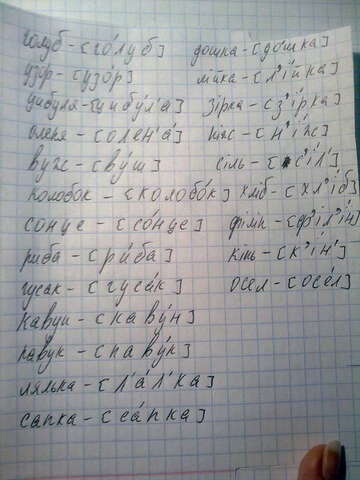 голуб - [го́луб]
узор - [узо́р]
цибуля - [цибу́л'а]
оленя - [олен'а́]
вуж - [ву́ш]
колобок - [колобо́к]
сонце - [со́нце]
риба - [ри́ба]
гусак - [гуса́к]
кавун - [каву́н]
павук - [паву́к]
лялька - [л'а́л'ка]
сапка - [са́пка]
дошка - [до́шка]
лійка - [л'і́йка]
зірка - [з'і́рка]
ніж - [н'і́ж]
сіль - [с'і́л']
хліб - [хл'і́б]
філін - [ф'і́л'ін]
кінь - [к'і́н']
осел - [осе́л]